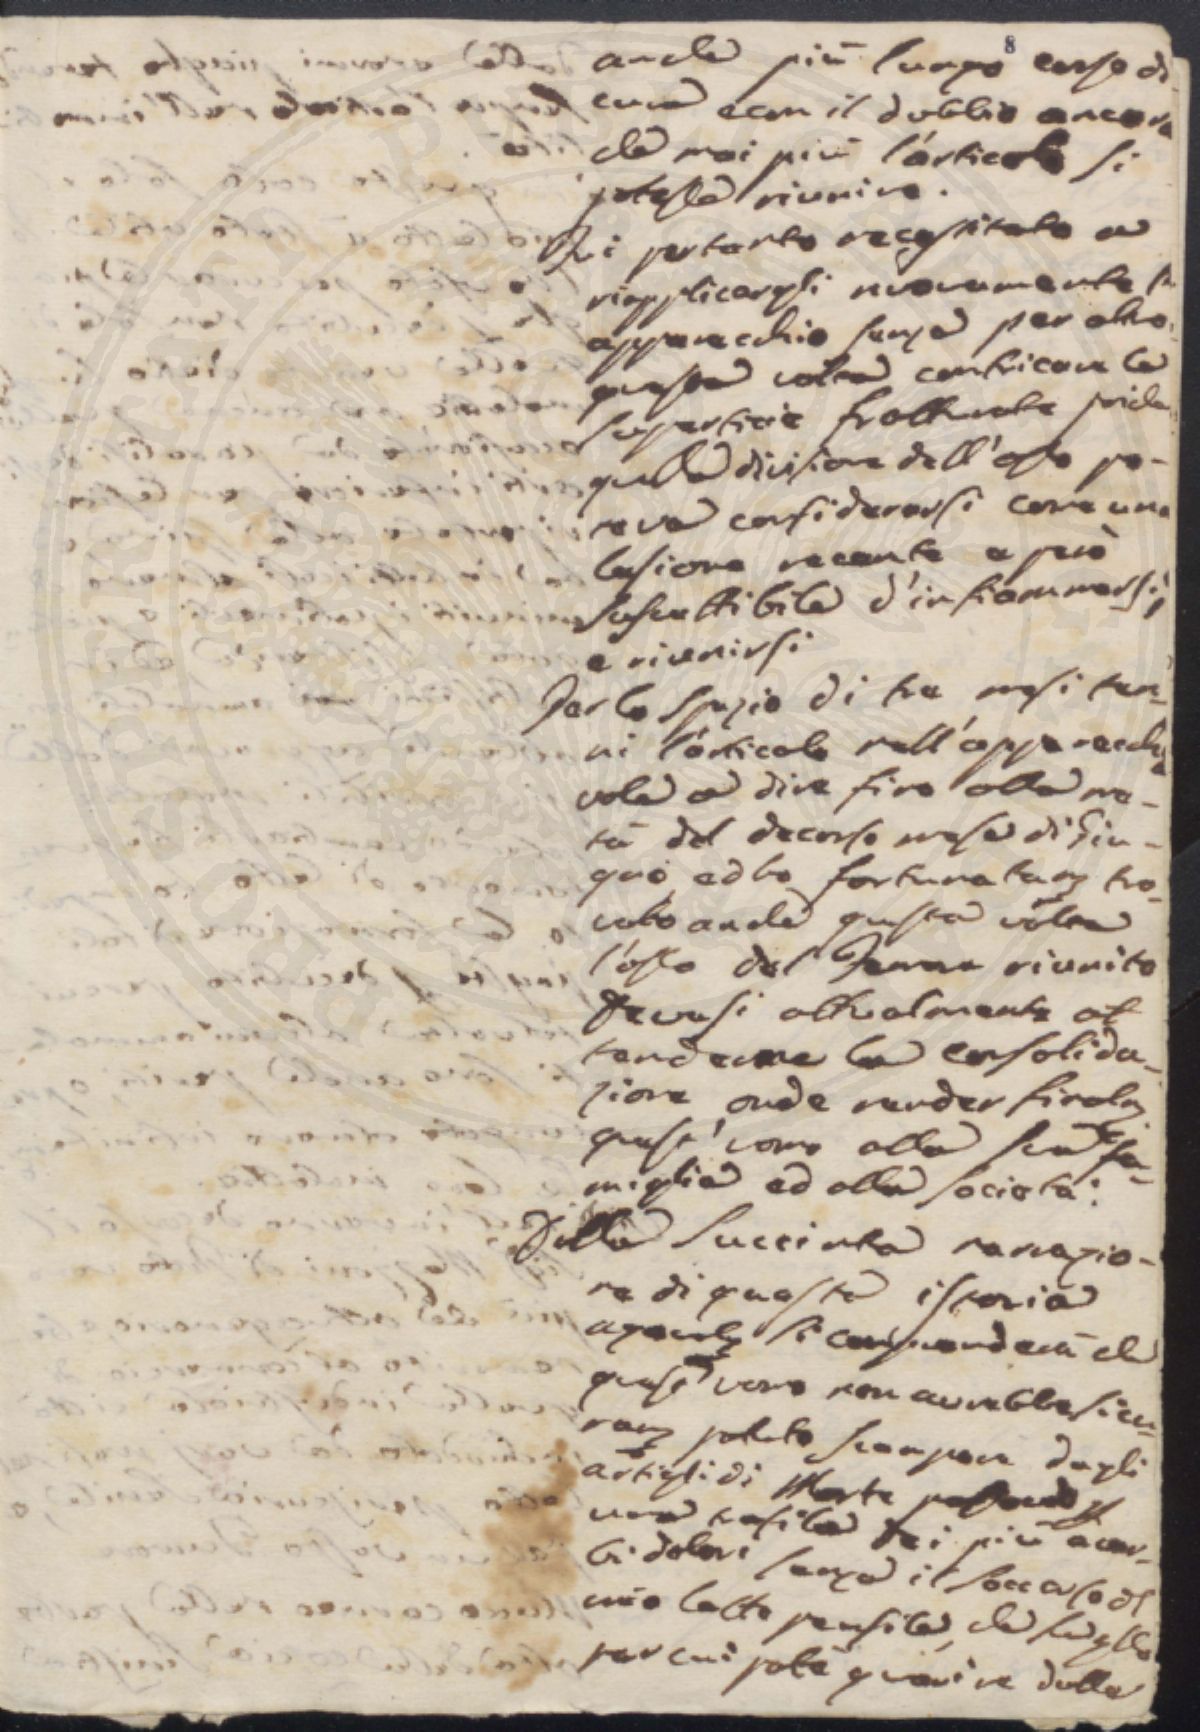 8
anche più lungo corso di
cura e con il dubbio ancora
che mai più l'articolo si
potesse riunire.
Qui pertanto necessitato a
riapplicargli nuovamente l'
apparecchio senza per altro
questa volta confricare le
superficie fratturate poiche
quella divisione dell'osso po-
teva considerarsi come una
lesione recente e però
suscettibile d'infiammarsi,
e riunirsi
Per lo spazio di tre mesi ten-
ni l'articolo nell'apparecchio
vale a dire fino alla me-
tà del decorso mese di Giu-
gno, ed ho fortunatam. tro-
vato anche questa volta
l'osso del Femore riunito
Devesi attualmente at
tenderne la consolida-
zione onde render finalm.
quest'uomo alla sua fa-
miglia ed alla società.
Dalla succinta narrazio-
ne di questa istoria
agevolm. si comprenderà che
quest'uomo non avrebbe sicu-
ram. potuto scampare dagli
artigli di Morte passando p.
una trafila dei più acer-
bi dolori senza il soccorso del
mio letto pensile, che su quello
per cui poté guarire dalle